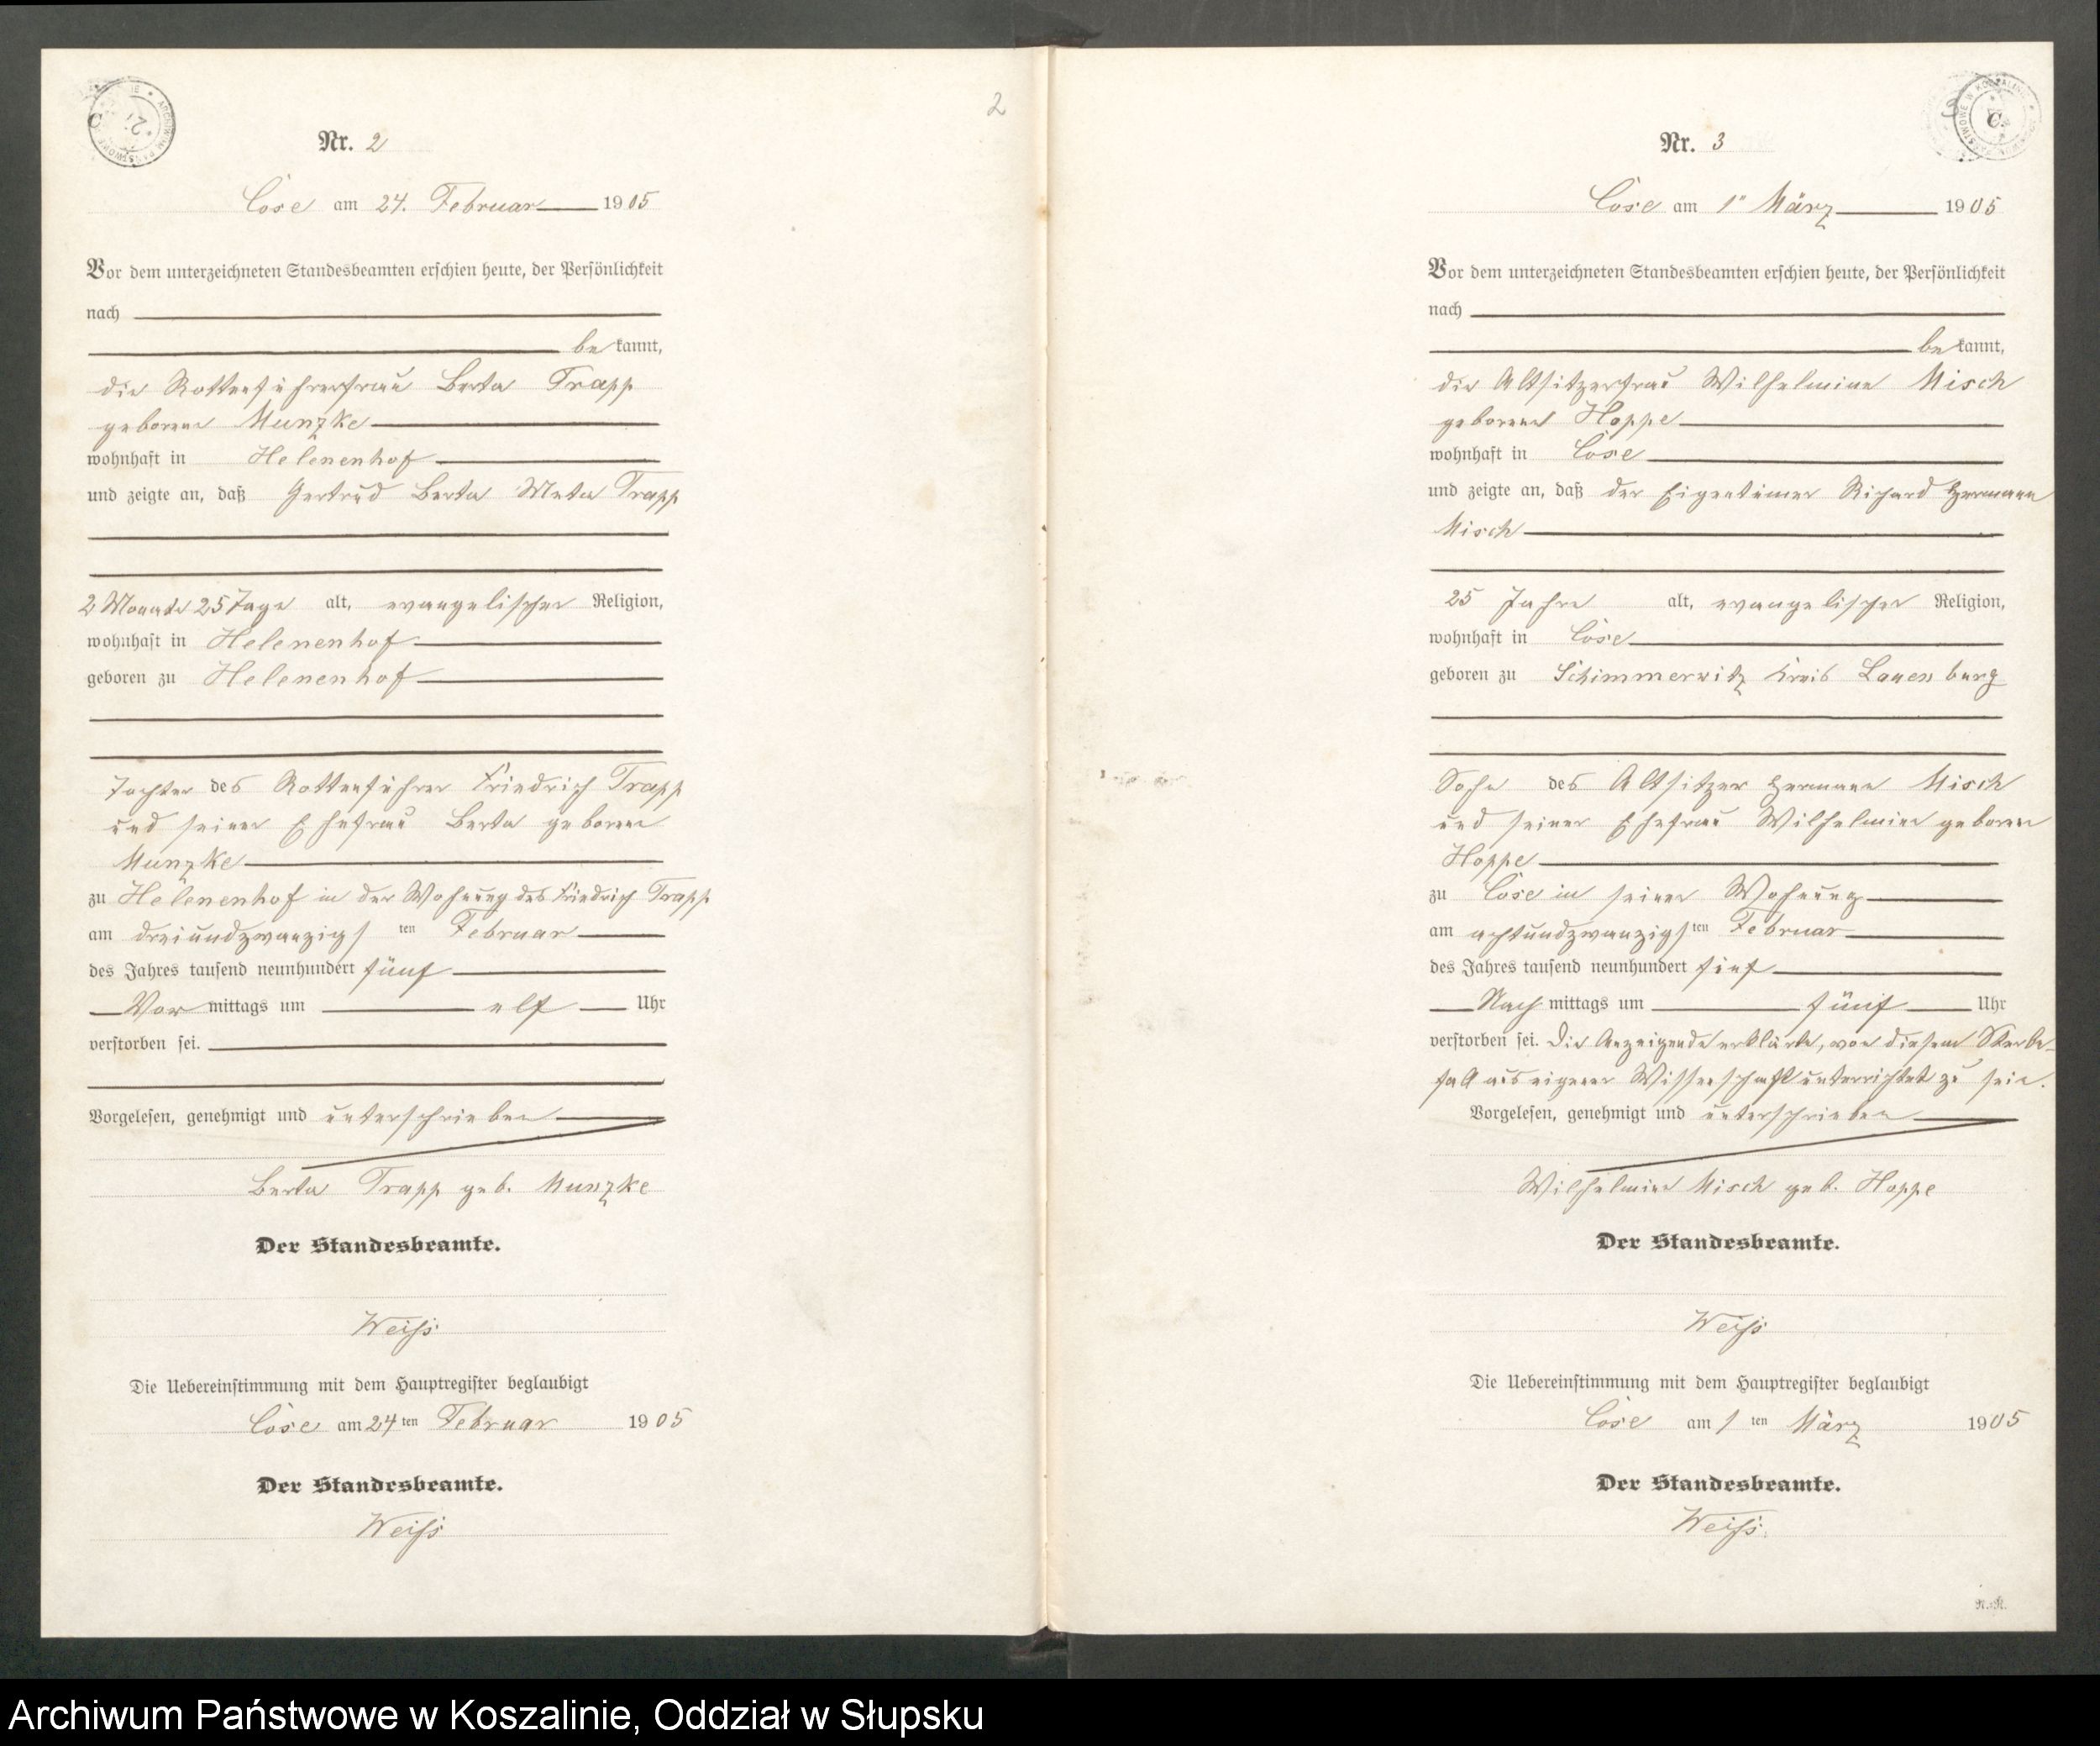 2
Nr. 2
Cöse am 24. Februar 1905
Vor dem unterzeichneten Standesbeamten erschien heute, der Persönlichkeit
nach
be kannt,
die Rottenführerfrau Berta Trapp
geborene Munzke
wohnhaft in Helenenhof
und zeigte an, daß Gertrud Berta Meta Trapp
2 Monate 25 Tage alt, evangelischer Religion,
wohnhaft in Helenenhof
geboren zu Helenenhof
Tochter des Rottenführer Friedrich Trapp
und seiner Ehefrau Berta geborene
Munzke
zu Helenenhof in der Wohnung des Friedrich Trapp
am dreiundzwanzigs ten Februar
des Jahres tausend neunhundert fünf
Vor mittags um elf Uhr
verstorben sei.
Vorgelesen, genehmigt und unterschrieben
Berta Trapp geb. Munzke
Der Standesbeamte.
Weiß
Die Uebereinstimmung mit dem Hauptregister beglaubigt
Cöse am 24 ten Februar 1905
Der Standesbeamte.
Weiß
Nr. 3
Cöse am 1n März 1905
Vor dem unterzeichneten Standesbeamten erschien heute, der Persönlichkeit
nach
be kannt,
die Altsitzerfrau Wilhelmine Misch
geborene Hoppe
wohnhaft in Cöse
und zeigte an, daß der Eigentümer Richard Hermann
Misch
25 Jahre alt, evangelischer Religion,
wohnhaft in Cöse
geboren zu Schimmerwitz Kreis Lauenburg
Sohn des Altsitzer Hermann Misch
und seiner Ehefrau Wilhelmine geborene
Hoppe
zu Cöse in seiner Wohnung
am achtundzwanzigs ten Februar
des Jahres tausend neunhundert fünf
Nach mittags um fünf Uhr
verstorben sei. Die Anzeigende erklärte, von diesem Sterbe-
fall aus eigener Wissenschaft unterrichtet zu sein.
Vorgelesen, genehmigt und unterschrieben
Wilhelmine Misch geb. Hoppe
Der Standesbeamte.
Weiß
Die Uebereinstimmung mit dem Hauptregister beglaubigt
Cöse am 1 ten März 1905
Der Standesbeamte.
Weiß.
Archiwum Państwowe w Koszalinie, Oddział w Słupsku